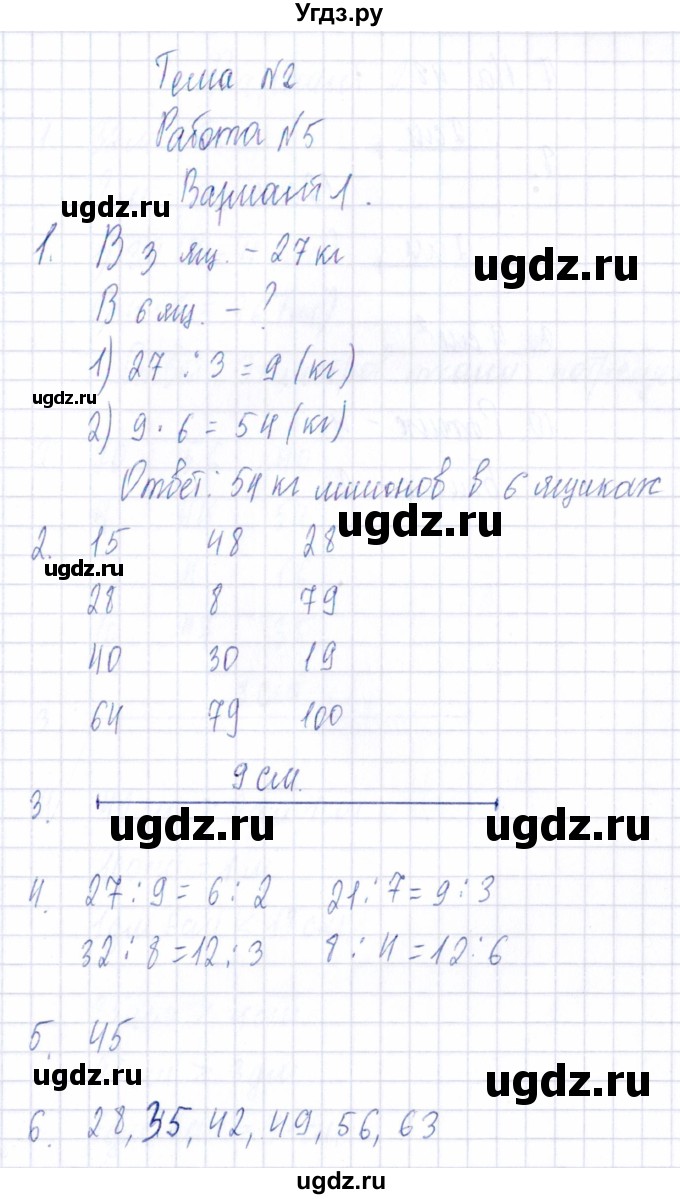 Угдз.ру
Тема №2
Работа №5
Вариант 1.
ugdz.ru
1. В 3 ящ. - 27 кг
ugdz.ru
В 6 ящ. - ?
1) 27 : 3 = 9 (кг)
ugdz.ru
2) 9 · 6 = 54 (кг)
Ответ: 54 кг лимонов в 6 ящиках
ugdz.ru
2. 15 48 28
ugdz.ru
28 8 79
40 30 19
64 79 100
9 см.
3.
ugdz.ru ugdz.ru
4. 27 : 9 = 6 : 2 21 : 7 = 9 : 3
32 : 8 = 12 : 3 8 : 4 = 12 : 6
5. 45
ugdz.ru ugdz.ru
6. 28, 35, 42, 49, 56, 63
ugdz.ru